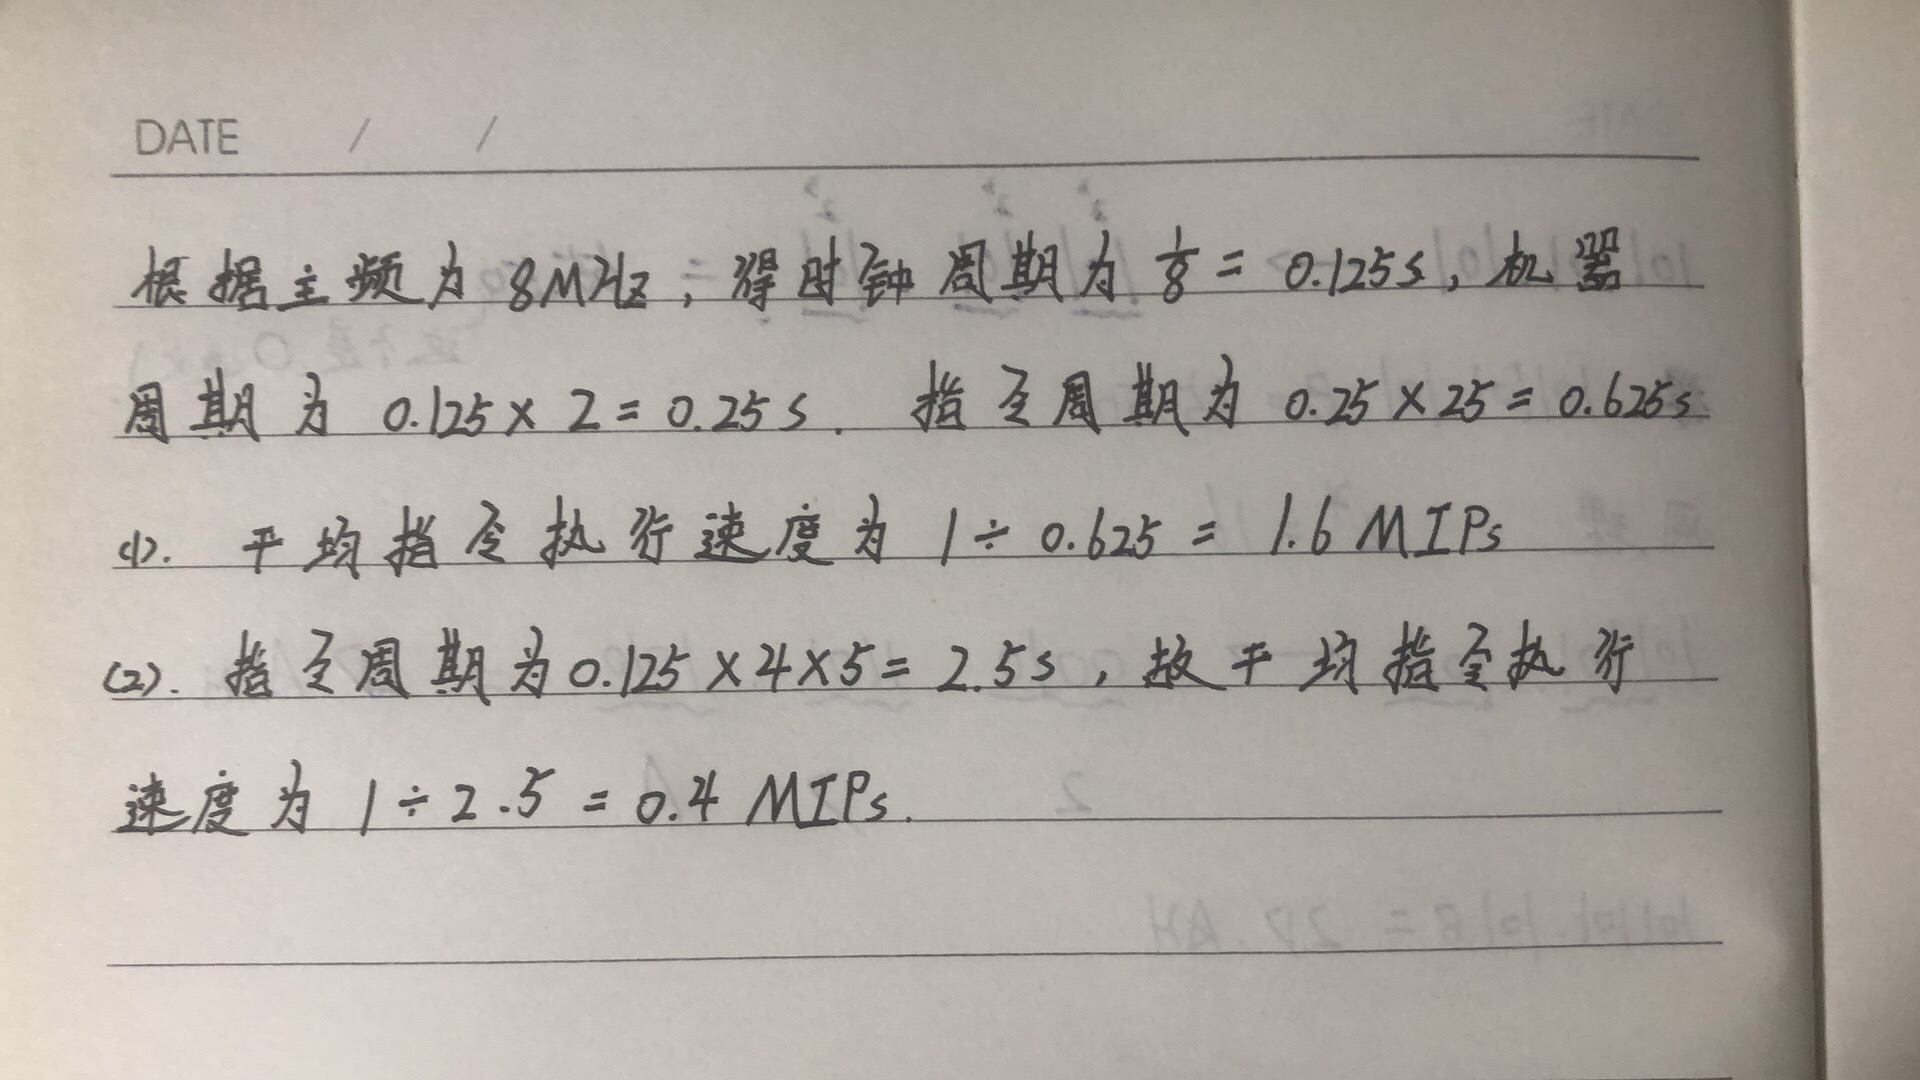 DATE / /
根据主频为 8MHz，得时钟周期为 1/8 = 0.125s，机器
周期为 0.125 × 2 = 0.25s. 指令周期为 0.25 × 25 = 0.625s
(1). 平均指令执行速度为 1 ÷ 0.625 = 1.6 MIPs
(2). 指令周期为 0.125 × 4 × 5 = 2.5s，故平均指令执行
速度为 1 ÷ 2.5 = 0.4 MIPs.